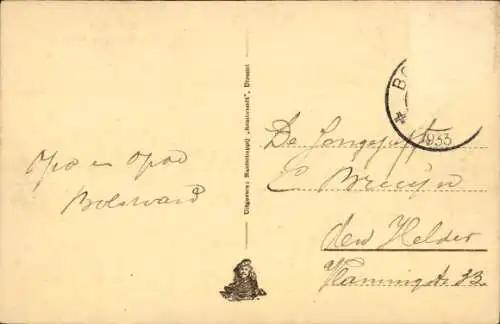 Opa en Opoe
Bolsward
Uitgevers: Maatschappij „Rembrandt", Utrecht
BO
1933
De Jongejuffr
C Bruijn
den Helder
Vlamingstr. 33.